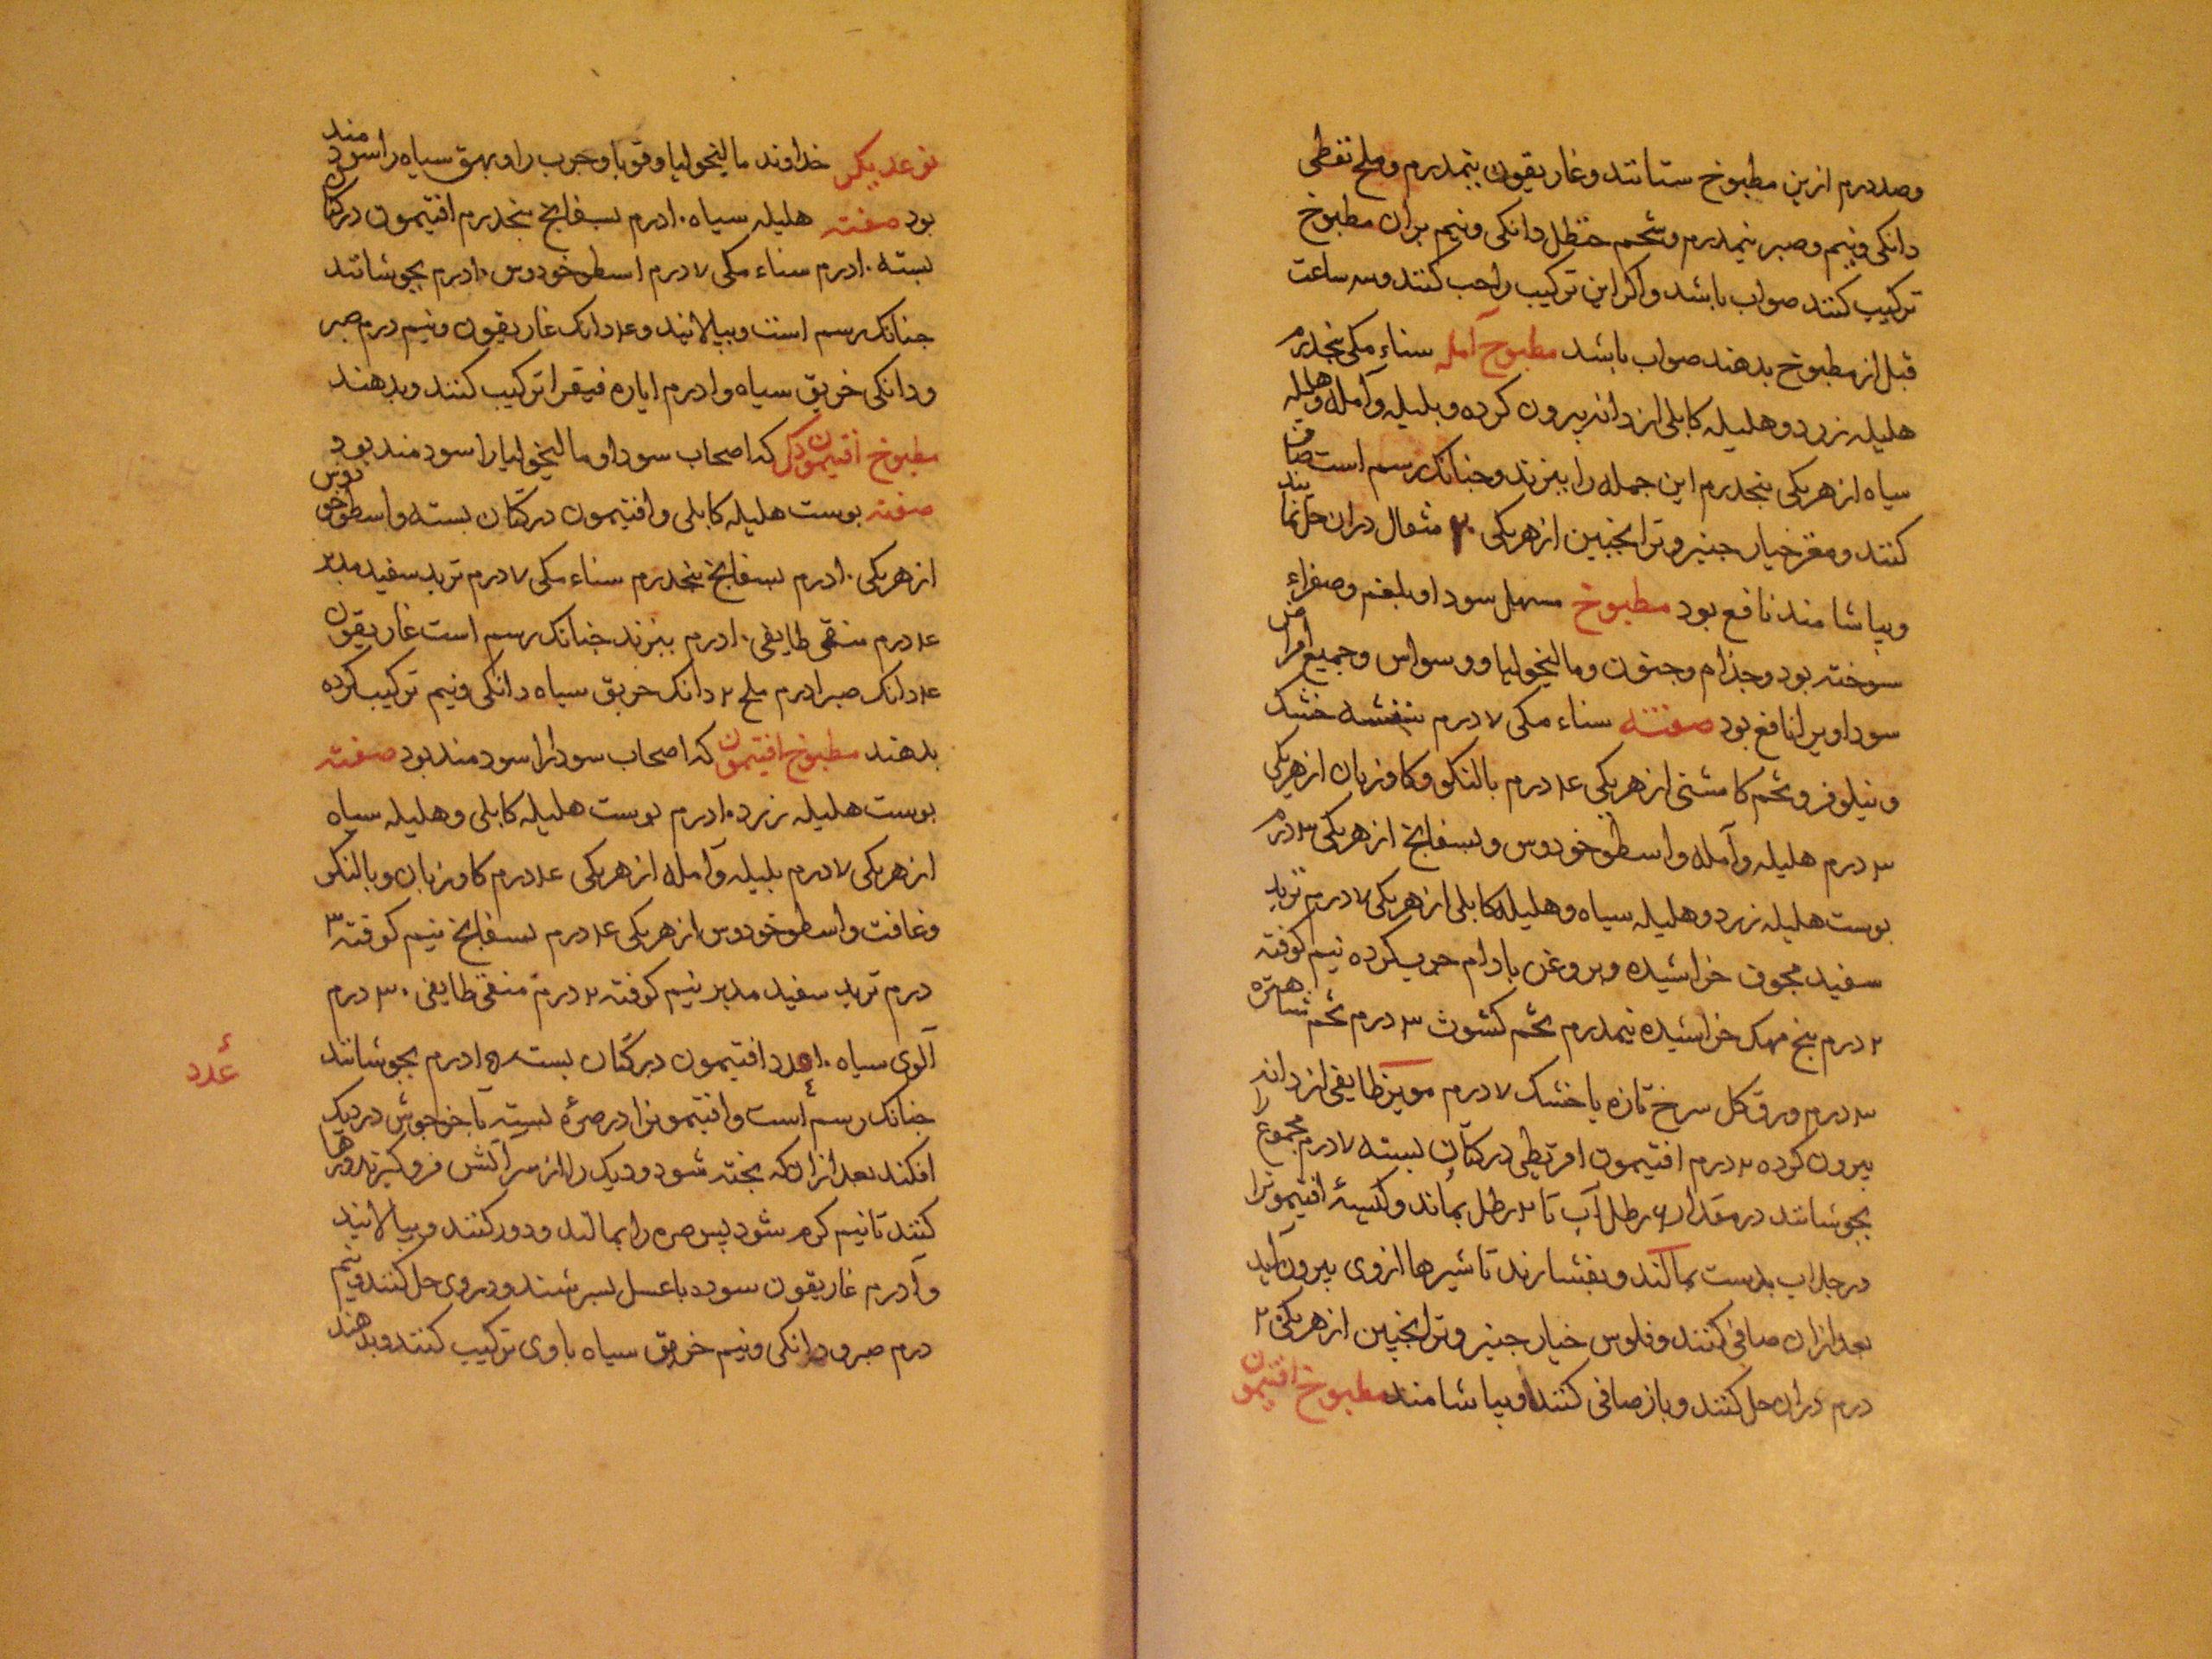 وصد درم ازین مطبوخ ستانند و غاریقون نیمدرم و ملح نفطی
دانکی و نیم و صبر نیمدرم و شحم حنظل دانکی و نیم بران مطبوخ
ترکیب کنند صواب باشد و اکر این ترکیب را حب کنند و سه ساعت
قبل از مطبوخ بدهند صواب باشد مطبوخ آمله سناء مکی پنجدرم
هلیله زرد و هلیله کابلی از دانه بیرون کرده و بلیله و آمله و هلیله
سیاه از هریکی پنجدرم این جمله را بپزند و جنانک رسم است صافی
کنند و مغز خیار جنبر و ترانجبین از هریکی ۲۰ مثقال دران حل نمایند
و بیاشامند نافع بود مطبوخ مسهل سودا و بلغم و صفراء
سوخته بود و جذام و جنون و مالیخولیا و وسواس و جمیع امراض
سوداوی را نافع بود صفته سناء مکی ۷ درم بنفشه خشک
و نیلوفر و تخم کاسنی از هریکی ۴ درم بالنکو و کاوزبان از هریکی
۳ درم هلیله و آمله و اسطوخودوس و بسفایج از هریکی ۳ درم
بوست هلیله زرد و هلیله سیاه و هلیله کابلی از هریکی ۷ درم تربد
سفید مجوف خراشیده و بروغن بادام جرب کرده نیم کوفته
۲ درم بیخ مهک خراشیده نیمدرم تخم کشوث ۳ درم تخم شاهتره
۳ درم ورق کل سرخ تازه یا خشک ۷ درم مویز طایفی از دانه
بیرون کرده ۲۰ درم افتیمون اقریطی در کتان بسته ۷ درم مجموع را
بجوشانند در مقدار ۶ رطل آب تا ۲ رطل بماند و کیسۀ افتیمونرا
در جلاب بدست بمالند و بفشارند تا شیرها از وی بیرون آید
بعد ازان صافی کنند و فلوس خیار جنبر و ترانجبین از هریکی ۲۰
درم دران حل کنند و باز صافی کنند و بیاشامند مطبوخ افتیمون
نوعدیکر خداوند مالیخولیا و قوبا و جرب را و بهق سیاه را سودمند
بود صفته هلیله سیاه ۱۰ درم بسفایج پنجدرم افتیمون در کتان
بسته ۱۰ درم سناء مکی ۷ درم اسطوخودوس ۱۰ درم بجوشانند
جنانک رسم است و بپالانید و ۴ دانک غاریقون و نیم درم صبر
و دانکی خربق سیاه و ۱ درم ایاره فیقرا ترکیب کنند و بدهند
مطبوخ افتیمون دکر که اصحاب سودا و مالیخولیا را سودمند بود
صفته بوست هلیله کابلی و افتیمون در کتان بسته و اسطوخودوس
از هریکی ۱۰ درم بسفایج پنجدرم سناء مکی ۷ درم تربد سفید مدبر
۴ درم منقی طایفی ۱۰ درم بپزند جنانک رسم است غاریقون
۴ دانک صبر ۱ درم ملح ۲ دانک خربق سیاه دانکی و نیم ترکیب کرده
بدهند مطبوخ افتیمون که اصحاب سودا را سودمند بود صفته
بوست هلیله زرد ۱۰ درم بوست هلیله کابلی و هلیله سیاه
از هریکی ۷ درم بلیله و آمله از هریکی ۴ درم کاوزبان و بالنکو
و غافت و اسطوخودوس از هریکی ۴ درم بسفایج نیم کوفته ۳
درم تربد سفید مدبر نیم کوفته ۲ درم منقی طایفی ۳۰ درم
آلوی سیاه ۱۰ عدد افتیمون در کتان بسته ۱۵ درم بجوشانند
عدد
جنانک رسم است و افتیمونرا در صرۀ بسته بآخر جوش در دیک
افکند بعد ازان که بخته شود و دیک را از سر آتش فرو کیرند و رها
کنند تا نیم کرم شود پس صره را بمالند و دور کنند و بپالانید
و ۱ درم غاریقون سوده با عسل بسرشند و در وی حل کنند و نیم
درم صبر و دانکی و نیم خربق سیاه با وی ترکیب کنند و بدهند